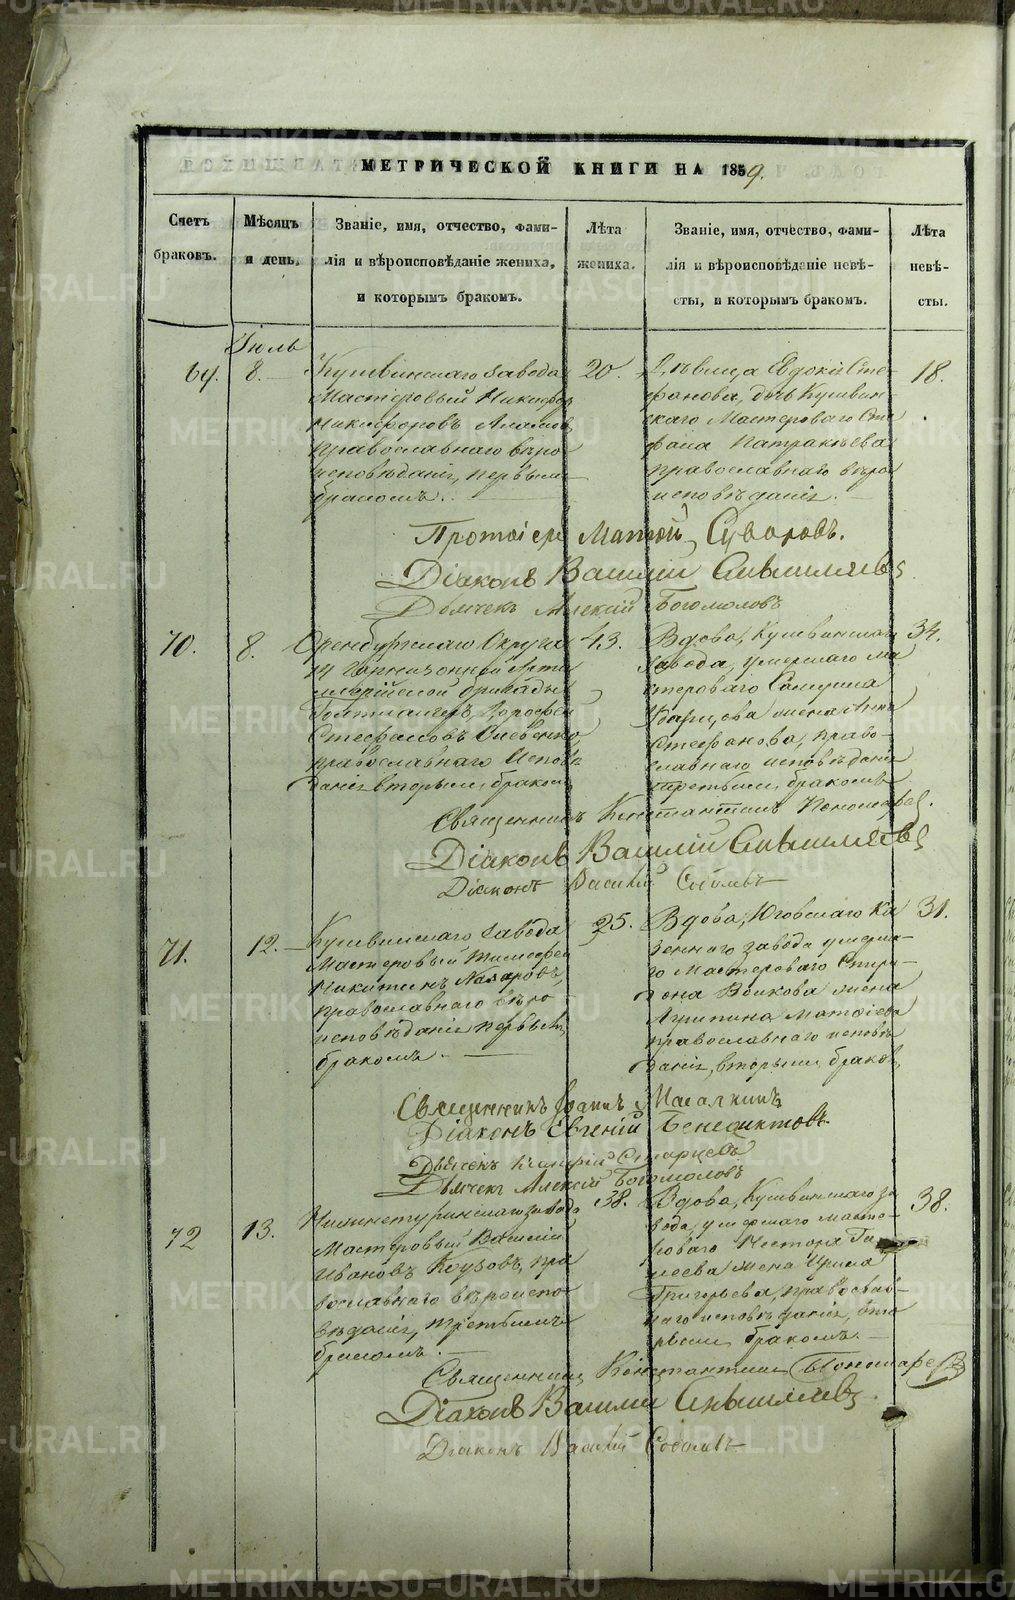 МЕТРИЧЕСКОЙ КНИГИ НА 1859.
Счетъ браковъ.
Мѣсяцъ и день.
Званіе, имя, отчество, фами-
лія и вѣроисповѣданіе жениха,
и которымъ бракомъ.
Лѣта жениха.
Званіе, имя, отчество, фами-
лія и вѣроисповѣданіе невѣ-
сты, и которымъ бракомъ.
Лѣта невѣ-
сты.
Іюль
69. 8.
Кушвинскаго завода
Мастеровый Никифор
Никифоровъ
православнаго вѣро
исповѣданія, первымъ
бракомъ.
20.
Дѣвица Евдокія Сте-
фанова, дочь Кушвин-
скаго Мастероваго Сте
фана Патракѣева
православнаго вѣро
исповѣданія.
18.
Протоіерей Матѳій Суворовъ.
Діаконъ Василій
Дьячекъ Алексій Богомоловъ
70. 8.
Оренбургскаго Округа
14 Гарнизонной Арти
ллерійской бригады
Дорофей
Стефановъ
православнаго исповѣ
данія вторымъ бракомъ
43.
Вдова, Кушвинскаго
завода, умершаго ма
стероваго
жена Анна
Стефанова, право-
славнаго исповѣданія
третьимъ бракомъ
34.
Священникъ Константинъ Пономарев.
Діаконъ Василій
Діаконъ Василій
71. 12.
Кушвинскаго завода
Мастеровый Тимофей
Никитинъ Назаровъ,
православнаго вѣро
исповѣданія первымъ
бракомъ.
25.
Вдова, Юговскаго Ка
зеннаго завода умерша-
го Мастероваго Спири-
дона Волкова жена
Матѳіева
православнаго исповѣ
данія, вторымъ браком
31.
Священникъ Іоаннъ
Діаконъ Евгеній Бенедиктовъ.
Дьячекъ Старцевъ
Дьячекъ Алексій Богомоловъ
72 13.
Нижнетуринскаго завода
Мастеровый Василій
Ивановъ пра
вославнаго вѣроиспо
вѣданія, третьимъ
бракомъ.
38.
Вдова, Кушвинскаго за
вода, умершаго масте-
роваго Нестора
жена Ирина
Григорьева, православ-
наго исповѣданія, вто
рымъ бракомъ.
38.
Священникъ Константинъ Пономаревъ
Діаконъ Василій
Діаконъ Василій
METRIKI.GASO-URAL.RU